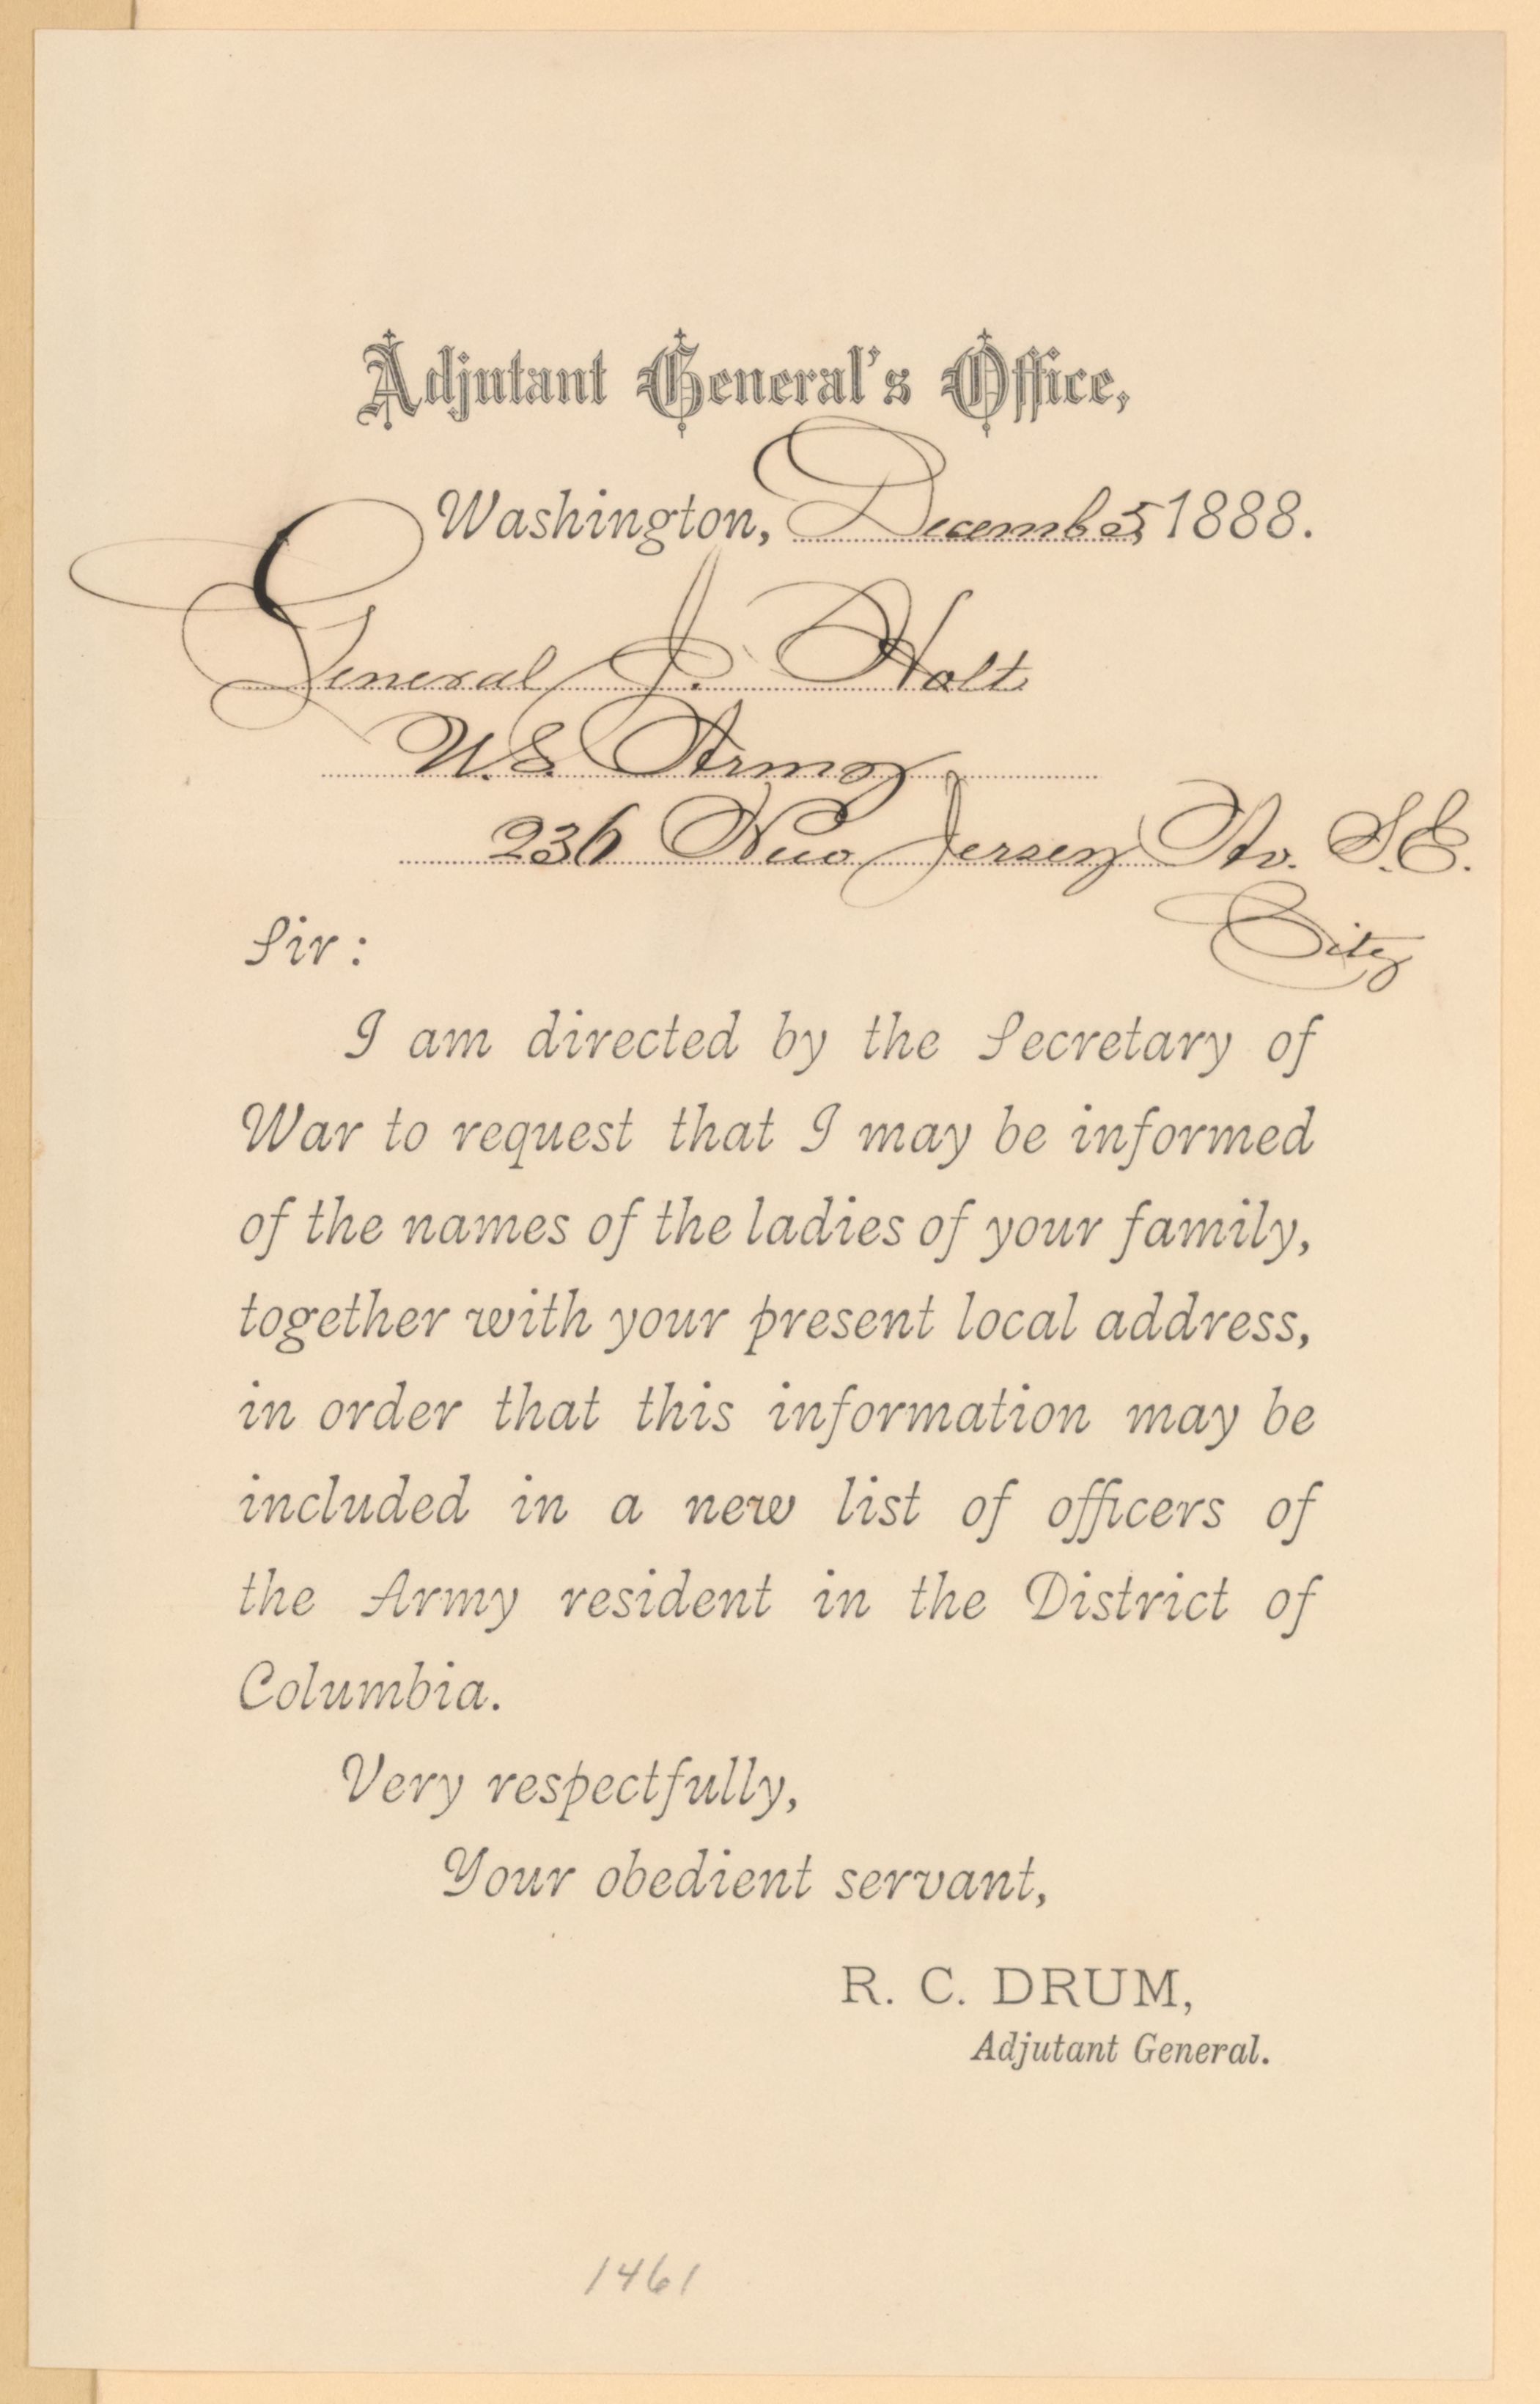 Adjutant General's Office,
Washington, Decemb 5, 1888.
General J. Holt
U.S. Army
236 New Jersey Av. S.E.
City
Sir:
I am directed by the Secretary of
War to request that I may be informed
of the names of the ladies of your family,
together with your present local address,
in order that this information may be
included in a new list of officers of
the Army resident in the District of
Columbia.
Very respectfully,
Your obedient servant,
R. C. DRUM,
Adjutant General.
1461